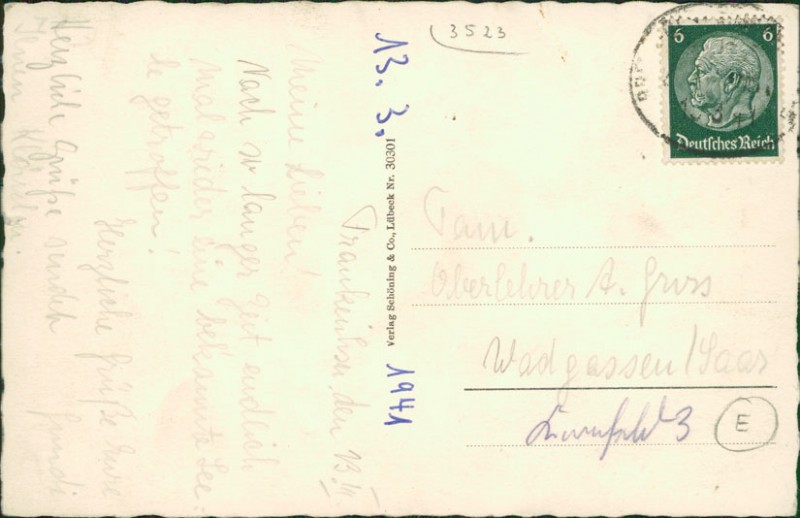 3523
6 6
Deutsches Reich
13. 3. 1941
Verlag Schöning & Co., Lübeck Nr. 30301
den 13.
Meine Lieben!
Nach so langer Zeit endlich
mal wieder eine bekannte See-
le getroffen!
Herzliche Grüße Eure
Herzliche Grüße sendet
Ihnen
Fam.
Oberlehrer A. Gross
Wadgassen/Saar
3
E